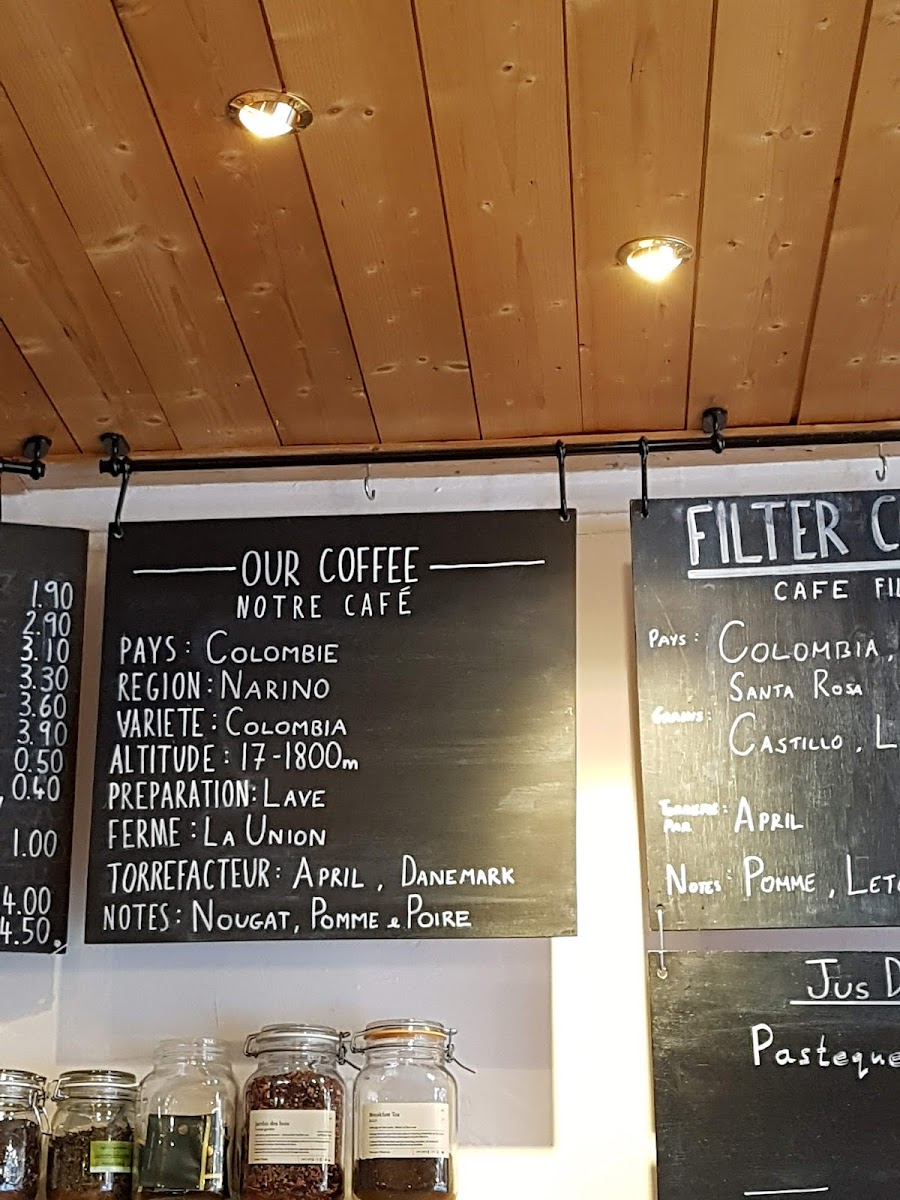 1.90
2.90
3.10
3.30
3.60
3.90
0.50
0.40
1.00
4.00
4.50
OUR COFFEE
NOTRE CAFÉ
PAYS: COLOMBIE
REGION: NARINO
VARIETE: COLOMBIA
ALTITUDE: 17-1800m
PREPARATION: LAVE
FERME: LA UNION
TORREFACTEUR: APRIL, DANEMARK
NOTES: NOUGAT, POMME & POIRE
FILTER C
CAFE FIL
PAYS: COLOMBIA,
SANTA ROSA
GRAINS:
CASTILLO, L
PAR APRIL
NOTES: POMME, LET
Jus D
Pasteque
Jardin des bois
Breakfast Tea